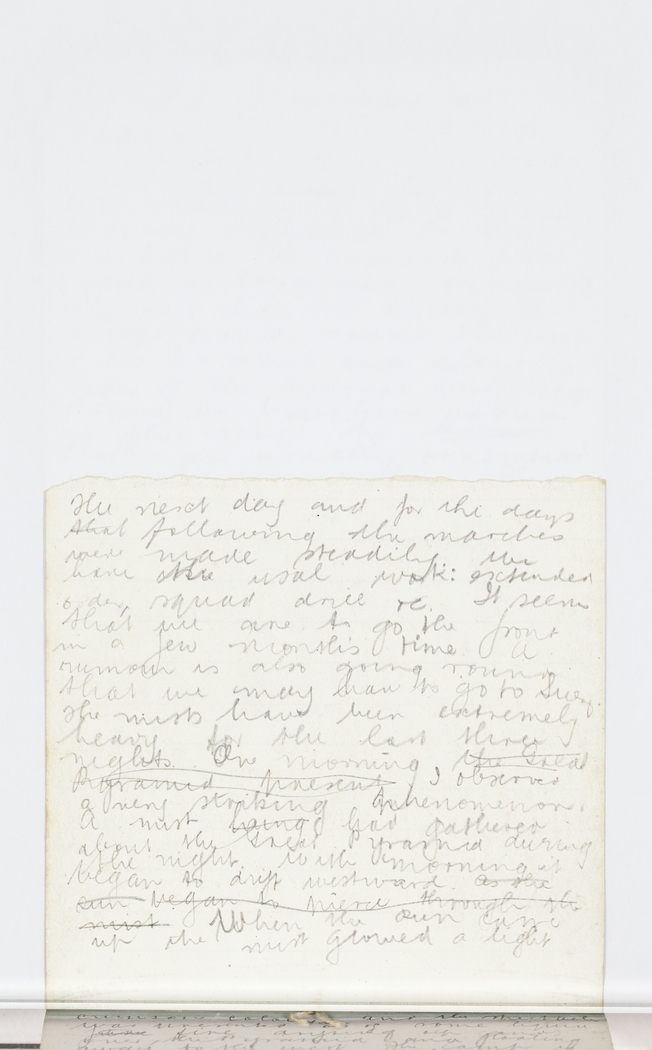 The next day and for the days
that following the marches
were made steadily. We
have the usal work: extended
order, squad drill &c. It seems
that we are to go the front
in a few months time. A
rumour is also going round
that we may have to go to Suez.
The mists have been extremely
heavy for the last three
nights. One morning the Great
Pyramid present I observed
a very striking phenomenon.
A mist hung had gathered
about the Great Pyramid during
the night. With morning it
began to drift westward as the
sun began to pierce through the
mist. When the sun came
up the mist glowed a light
crimson color and